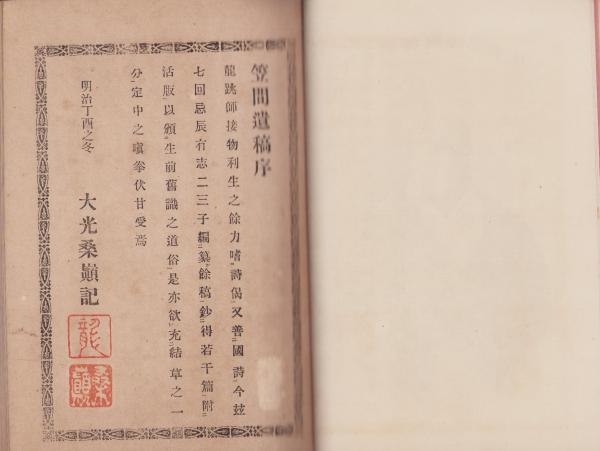 笠間遺稿序
龍跳師接物利生之餘力嗜詩偈又善國詩今玆
七回忌辰有志二三子編纂餘稿鈔得若干篇附
活版以頒生前舊識之道俗是亦欲充結草之一
分定中之嗔拳伏甘受焉
明治丁酉之冬
大光桑巓記
龍
桑巓